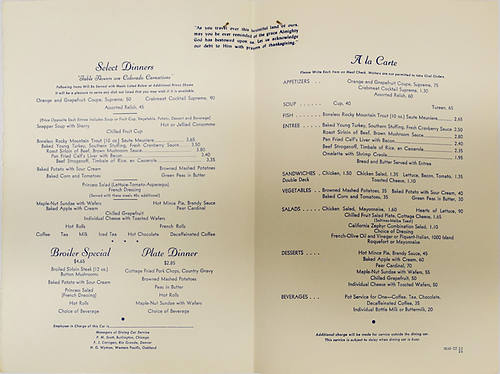 "As you travel over this bountiful land of ours,
may you be ever reminded of the grace Almighty
God has bestowed upon us. Let us acknowledge
our debt to Him with prayers of thanksgiving."
Select Dinners
Table Flowers are Colorado Carnations
Following Items Will Be Served with Meals Listed Below at Additional Prices Shown
It will be a pleasure to serve any dish not listed that you may wish if it is available.
Orange and Grapefruit Coupe, Supreme, 50 Crabmeat Cocktail Supreme, 90
Assorted Relish, 45
(Price Opposite Each Entree Includes Soup or Fruit Cup, Vegetable, Potato, Dessert and Beverage)
Scepper Soup with Sherry Hot or Jellied Consomme
Chilled Fruit Cup
Boneless Rocky Mountain Trout (10 oz.) Saute Meuniere 3.65
Baked Young Turkey, Southern Stuffing, Fresh Cranberry Sauce 3.50
Roast Sirloin of Beef, Brown Mushroom Sauce 3.80
Pan Fried Calf's Liver with Bacon 3.40
Beef Stroganoff, Timbale of Rice, en Casserole 3.35
Baked Potato with Sour Cream Browned Mashed Potatoes
Baked Corn and Tomatoes Green Peas in Butter
Princess Salad (Lettuce-Tomato-Asparagus)
French Dressing
(Served with these meals 40c additional)
Maple-Nut Sundae with Wafers Hot Mince Pie, Brandy Sauce
Baked Apple with Cream Pear Cardinal
Chilled Grapefruit
Individual Cheese with Toasted Wafers
Hot Rolls French Rolls
Coffee Tea Milk Iced Tea Hot Chocolate Decaffeinated Coffee
Broiler Special
$4.65
Broiled Sirloin Steak (12 oz.)
Button Mushrooms
Baked Potato with Sour Cream
Princess Salad
(French Dressing)
Hot Rolls
Choice of Beverage
Plate Dinner
$2.85
Cottage Fried Pork Chops, Country Gravy
Browned Mashed Potatoes
Peas in Butter
Hot Rolls
Maple-Nut Sundae with Wafers
Choice of Beverage
Employee in Charge of this Car is
Managers of Dining Car Service
P. M. Scott, Burlington, Chicago
F. J. Corrigan, Rio Grande, Denver
H. G. Wyman, Western Pacific, Oakland
A la Carte
Please Write Each Item on Meal Check. Waiters are not permitted to take Oral Orders
APPETIZERS Orange and Grapefruit Coupe, Supreme, 75
Crabmeat Cocktail Supreme, 1.30
Assorted Relish, 60
SOUP Cup, 40 Tureen, 65
FISH Boneless Rocky Mountain Trout (10 oz.) Saute Meuniere 2.65
ENTREE Baked Young Turkey, Southern Stuffing, Fresh Cranberry Sauce 2.50
Roast Sirloin of Beef, Brown Mushroom Sauce 2.80
Pan Fried Calf's Liver with Bacon 2.40
Beef Stroganoff, Timbale of Rice, en Casserole 2.35
Omelette with Shrimp Creole 1.95
Bread and Butter Served with Entrees
SANDWICHES Chicken, 1.50 Chicken Salad, 1.35 Lettuce, Bacon, Tomato, 1.35
Double Deck Toasted Cheese, 1.10
VEGETABLES Browned Mashed Potatoes, 35 Baked Potato with Sour Cream, 40
Baked Corn and Tomatoes, 35 Green Peas in Butter, 30
SALADS Chicken Salad, Mayonnaise, 1.60 Hearts of Lettuce, 90
Chilled Fruit Salad Plate, Cottage Cheese, 1.65
(Saltines-Melba Toast)
California Zephyr Combination Salad, 1.10
Choice of Dressing
French-Olive Oil and Vinegar or Piquant-Italian, 1000 Island
Roquefort or Mayonnaise
DESSERTS Hot Mince Pie, Brandy Sauce, 45
Baked Apple with Cream, 60
Pear Cardinal, 70
Maple-Nut Sundae with Wafers, 55
Chilled Grapefruit, 50
Individual Cheese with Toasted Wafers, 50
BEVERAGES Pot Service for One—Coffee, Tea, Chocolate,
Decaffeinated Coffee, 35
Individual Bottle Milk or Buttermilk, 20
Additional charge will be made for service outside the dining car.
This service is subject to delay when dining car is busy.